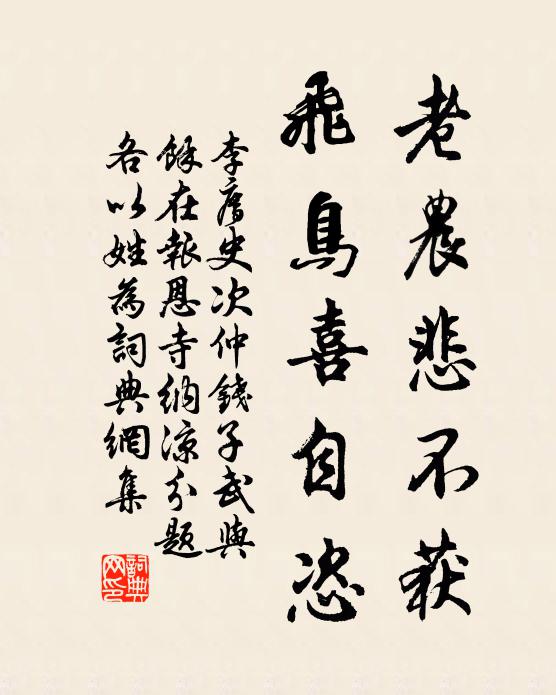 老農悲不获
飛鳥喜自恣
李唐史次仲錢子武與
餘在報恩寺納涼分題
各以姓為詞典網集
詞典网印